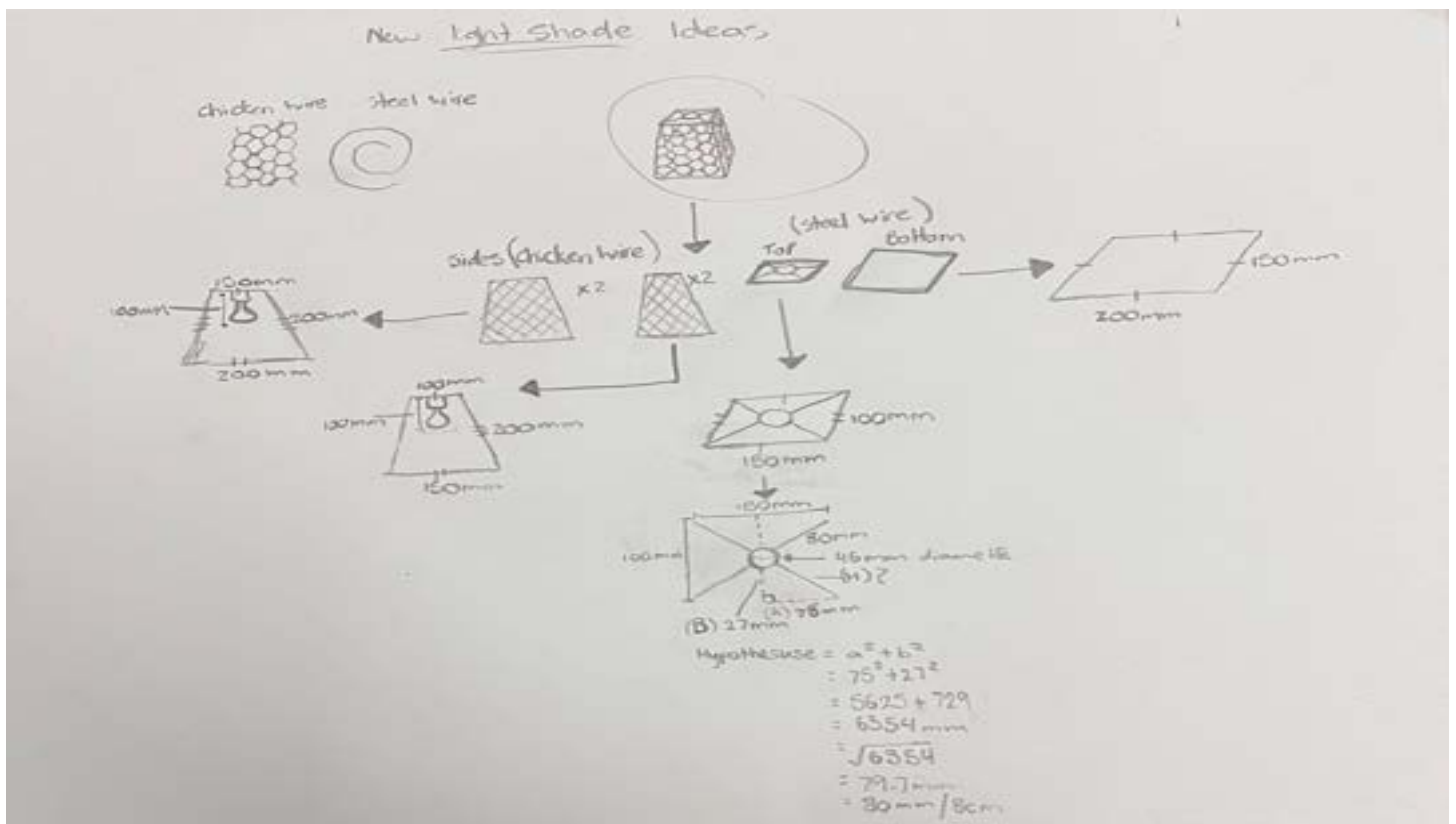 New light shade Ideas
chicken wire steel wire
(steel wire)
sides (chicken wire)
x2
x2
Top
Bottom
150mm
200mm
150mm
100mm
200mm
200mm
100mm
100mm
200mm
150mm
100mm
150mm
150mm
100mm
80mm
45mm
(H) ?
(A) 75mm
(B) 27mm
= a² + b²
= 75² + 27²
= 5625 + 729
= 6354 mm
= √6354
= 79.7mm
= 80mm/8cm